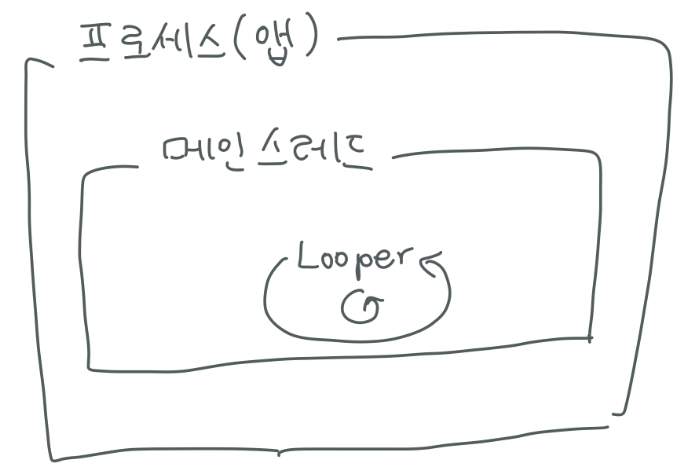 프로세스(앱)
메인 스레드
Looper